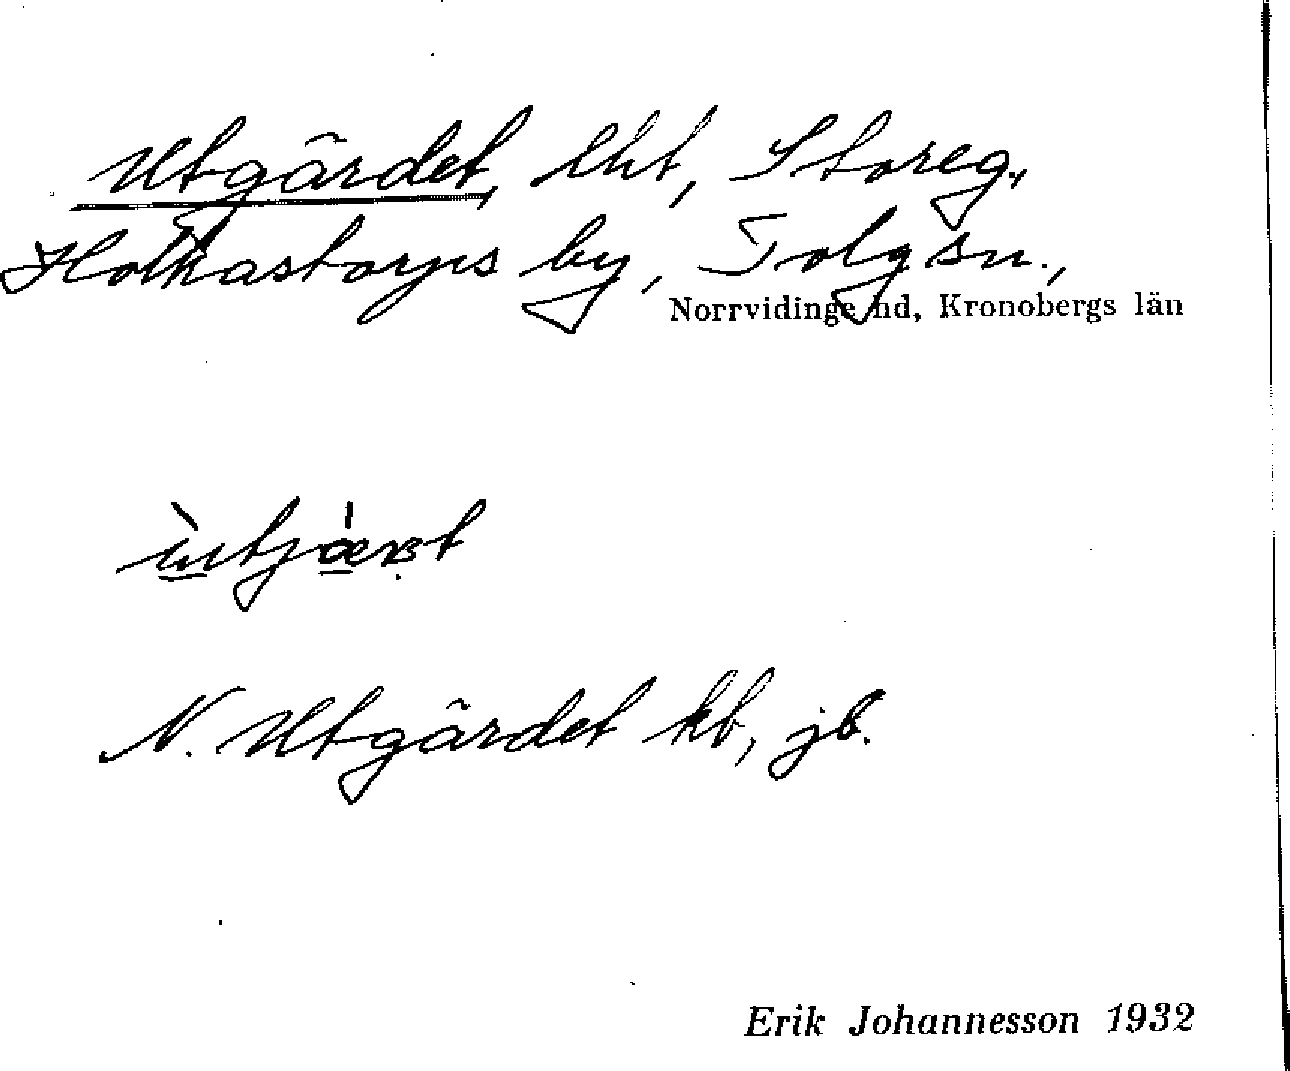 Utgärdet, lht, Storeg.,
Hothastorps by, Tolg sn.,
Norrvidinge hd, Kronobergs län
N. Utgärdet kb, jb.
Erik Johannesson 1932